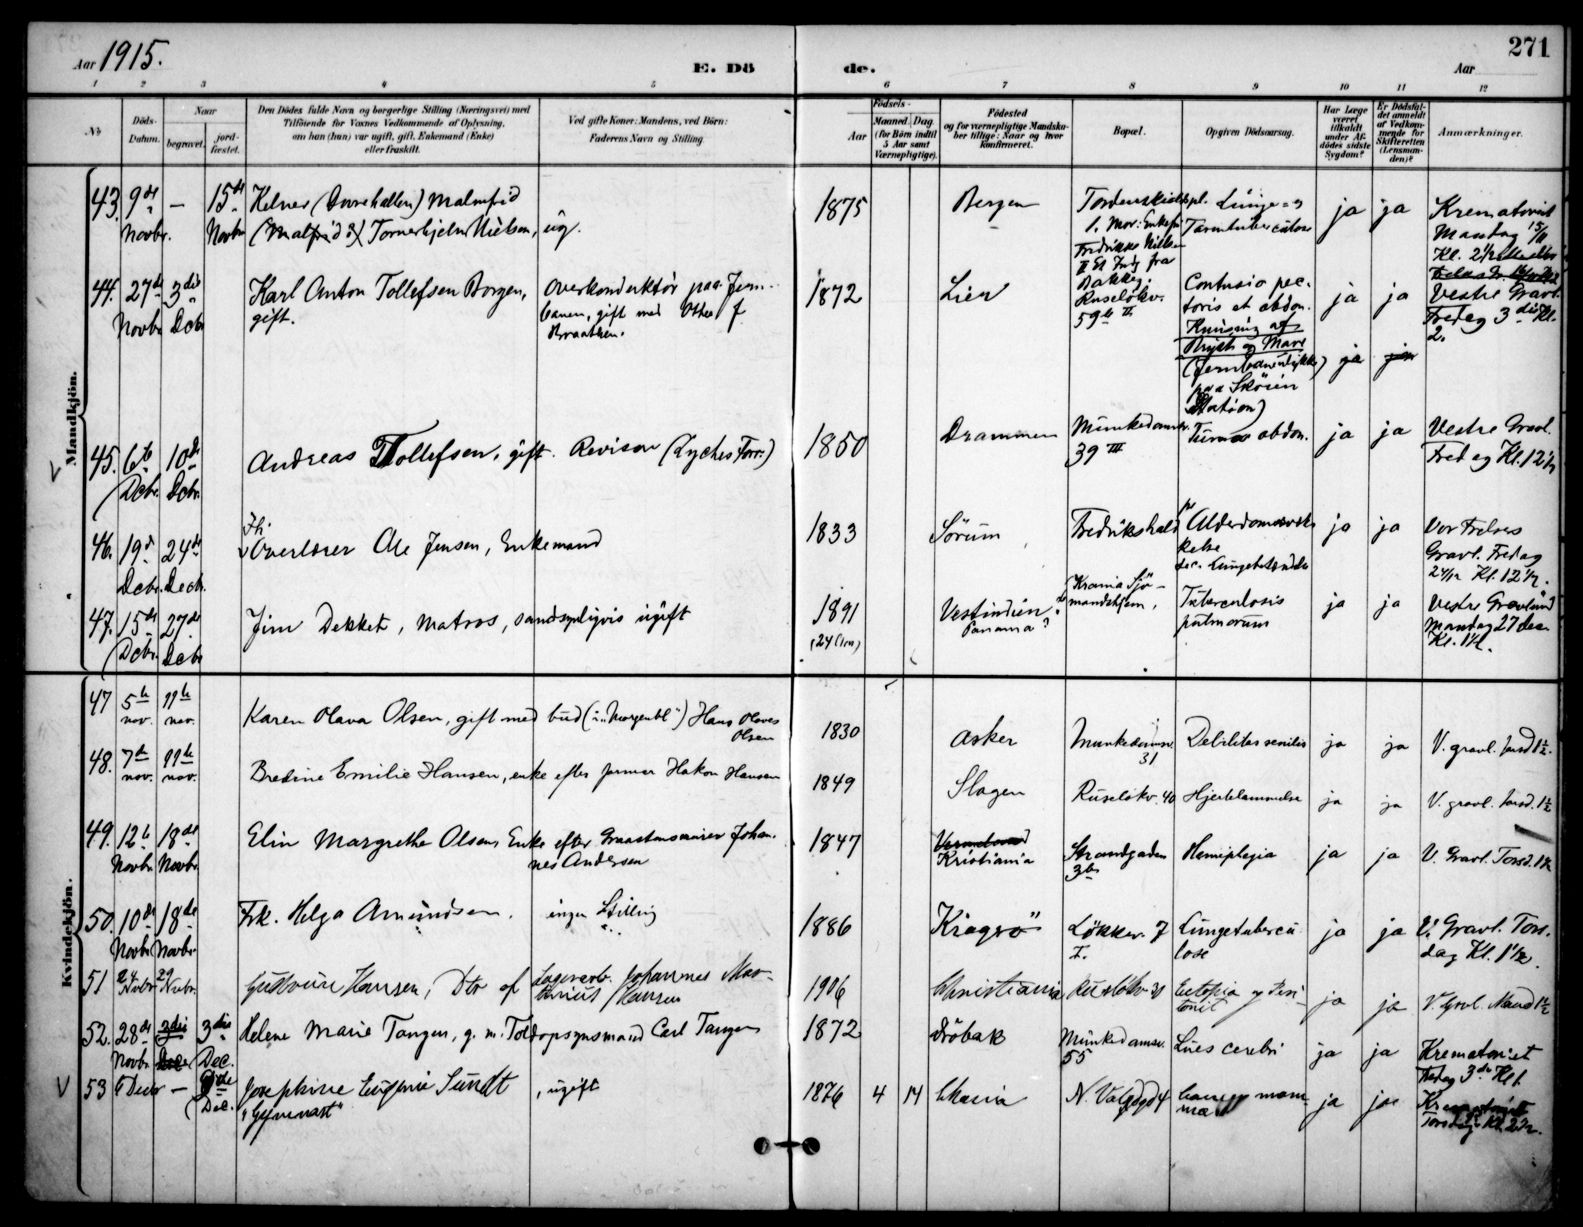 Aar 1915.
E. Dö
de.
Aar
271
1 2 3 4 5 6 7 8 9 10 11 12
No
Döds-Datum.
Naar
begravet.
jord-fæstet.
Den Dödes fulde Navn og borgerlige Stilling (Næringsvei) med
Tilföiende for Voxnes Vedkommende af Oplysning,
om han (hun) var ugift, gift, Enkemand (Enke)
eller fraskilt.
Ved gifte Koner: Mandens, ved Börn:
Faderens Navn og Stilling
Födsels-
Aar
Maaned. Dag.
(for Börn indtil
5 Aar samt
Værnepligtige).
Födested
og for værnepligtige Mandska-
ber tillige: Naar og hvor
konfirmeret.
Bopæl.
Opgiven Dödsaarsag.
Har Læge
været
tilkaldt
under Af-
dödes sidste
Sygdom?
Er Dödsfal-
det anmeldt
af Vedkom-
mende for
Skifteretten
(Lensman-
den)?
Anmærkninger.
Mandkjön.
43. 9de Novbr. — 15de Novbr
Kelner (Dovrehallen) Malmfrid
Nielsen, ug.
1875 Bergen
Lunge= og
Tarmtuberculose
ja ja
Krematoriet
Mandag 15/11
44. 27de Novbr 3die Decbr
Karl Anton Tollefsen Borgen,
gift.
Overkonduktör paa Jern-
banen, gift med
Braathen.
1872 Lier
Ruselökv.
59b II
Contusio pec-
toris et abdom.
Knusning af
Bryst og Mave
(Jernbaneulykke
paa Sköien
Station)
ja ja
Vestre Gravl.
Fredag 3die Kl.
2.
45. 6te Decbr. 10de Decbr.
Andreas Tollefsen, gift. Revisor
1850 Drammen
Munkedamsv.
39 III
Tumor abdom.
ja ja
Vestre Gravl.
Fredag Kl. 12½
46. 19de Decbr. 24de Decbr.
Fh.
Overlærer Ole Jensen, Enkemand
1833 Sörum
Fredrikshald
Alderdomssvæk-
kelse
ja ja
Vor Frelsers
Gravl. Fredag
24/12 Kl. 12½.
47. 15de Decbr. 27de Decbr
Jim Dekket, Matros, sandsynligvis ugift
1891
Vestindien?
Panama?
Krania Sjö-
mandshjem,
Tuberculosis
pulmorum
ja ja
Vestre Gravlund
Mandag 27 dec.
Kl. 1½.
Kvindekjön.
47 5te nov. 11te nov.
Karen Olava Olsen, gift med bud (i "Morgenbl") Hans Olaves
Olsen
1830 Asker
Munkedamsv.
31
Debilitas senilis
ja ja
V. gravl. torsd 1½.
48. 7de nov. 11te nov.
Bredine Emilie Hansen, enke efter former Hakon Hansen
1849 Slagen
Ruselökv. 40
Hjertelammelse
ja ja
V. gravl. torsd. 1½
49. 12te Novbr 18de Novbr
Elin Margrethe Olsen Enke efter Graastensmurer Johan-
nes Andersen
1847
Kristiania
Strandgaden
3b
Hemiplegia
ja ja
V. Gravl. Torsd. 1½
50. 10de Novbr 18de Novbr
Frk. Helga Amundsen. ingen Stilling
1886 Kragerö
Lökkev. 7
I.
Lungetubercu-
lose
ja ja
V. Gravl. Tors-
dag Kl. 1½
51 24 Novbr 29 Novbr.
Gudveig Hansen, Dtr af Lagerarb. Johannes
Hansen
1906 Christiania
Ruslökv 31
ja ja
V. Gravl. Mand 1½
52. 28de Novbr 3die Dec. 3die Dec.
Helene Marie Tangen, g. m. Toldopsynsmand Carl Tangen
1872 Dröbak
Munkedamsv.
55
Lues cerebri
ja ja
Krematoriet
Fredag 3de Kl 1.
53 6 Decbr — 9de Dec.
Josephine Eugenie Sundt, ugift
1876 4 14
Chania
4
Cancer mam-
mæ
ja ja
Krematoriet
Torsdag Kl. 2½.